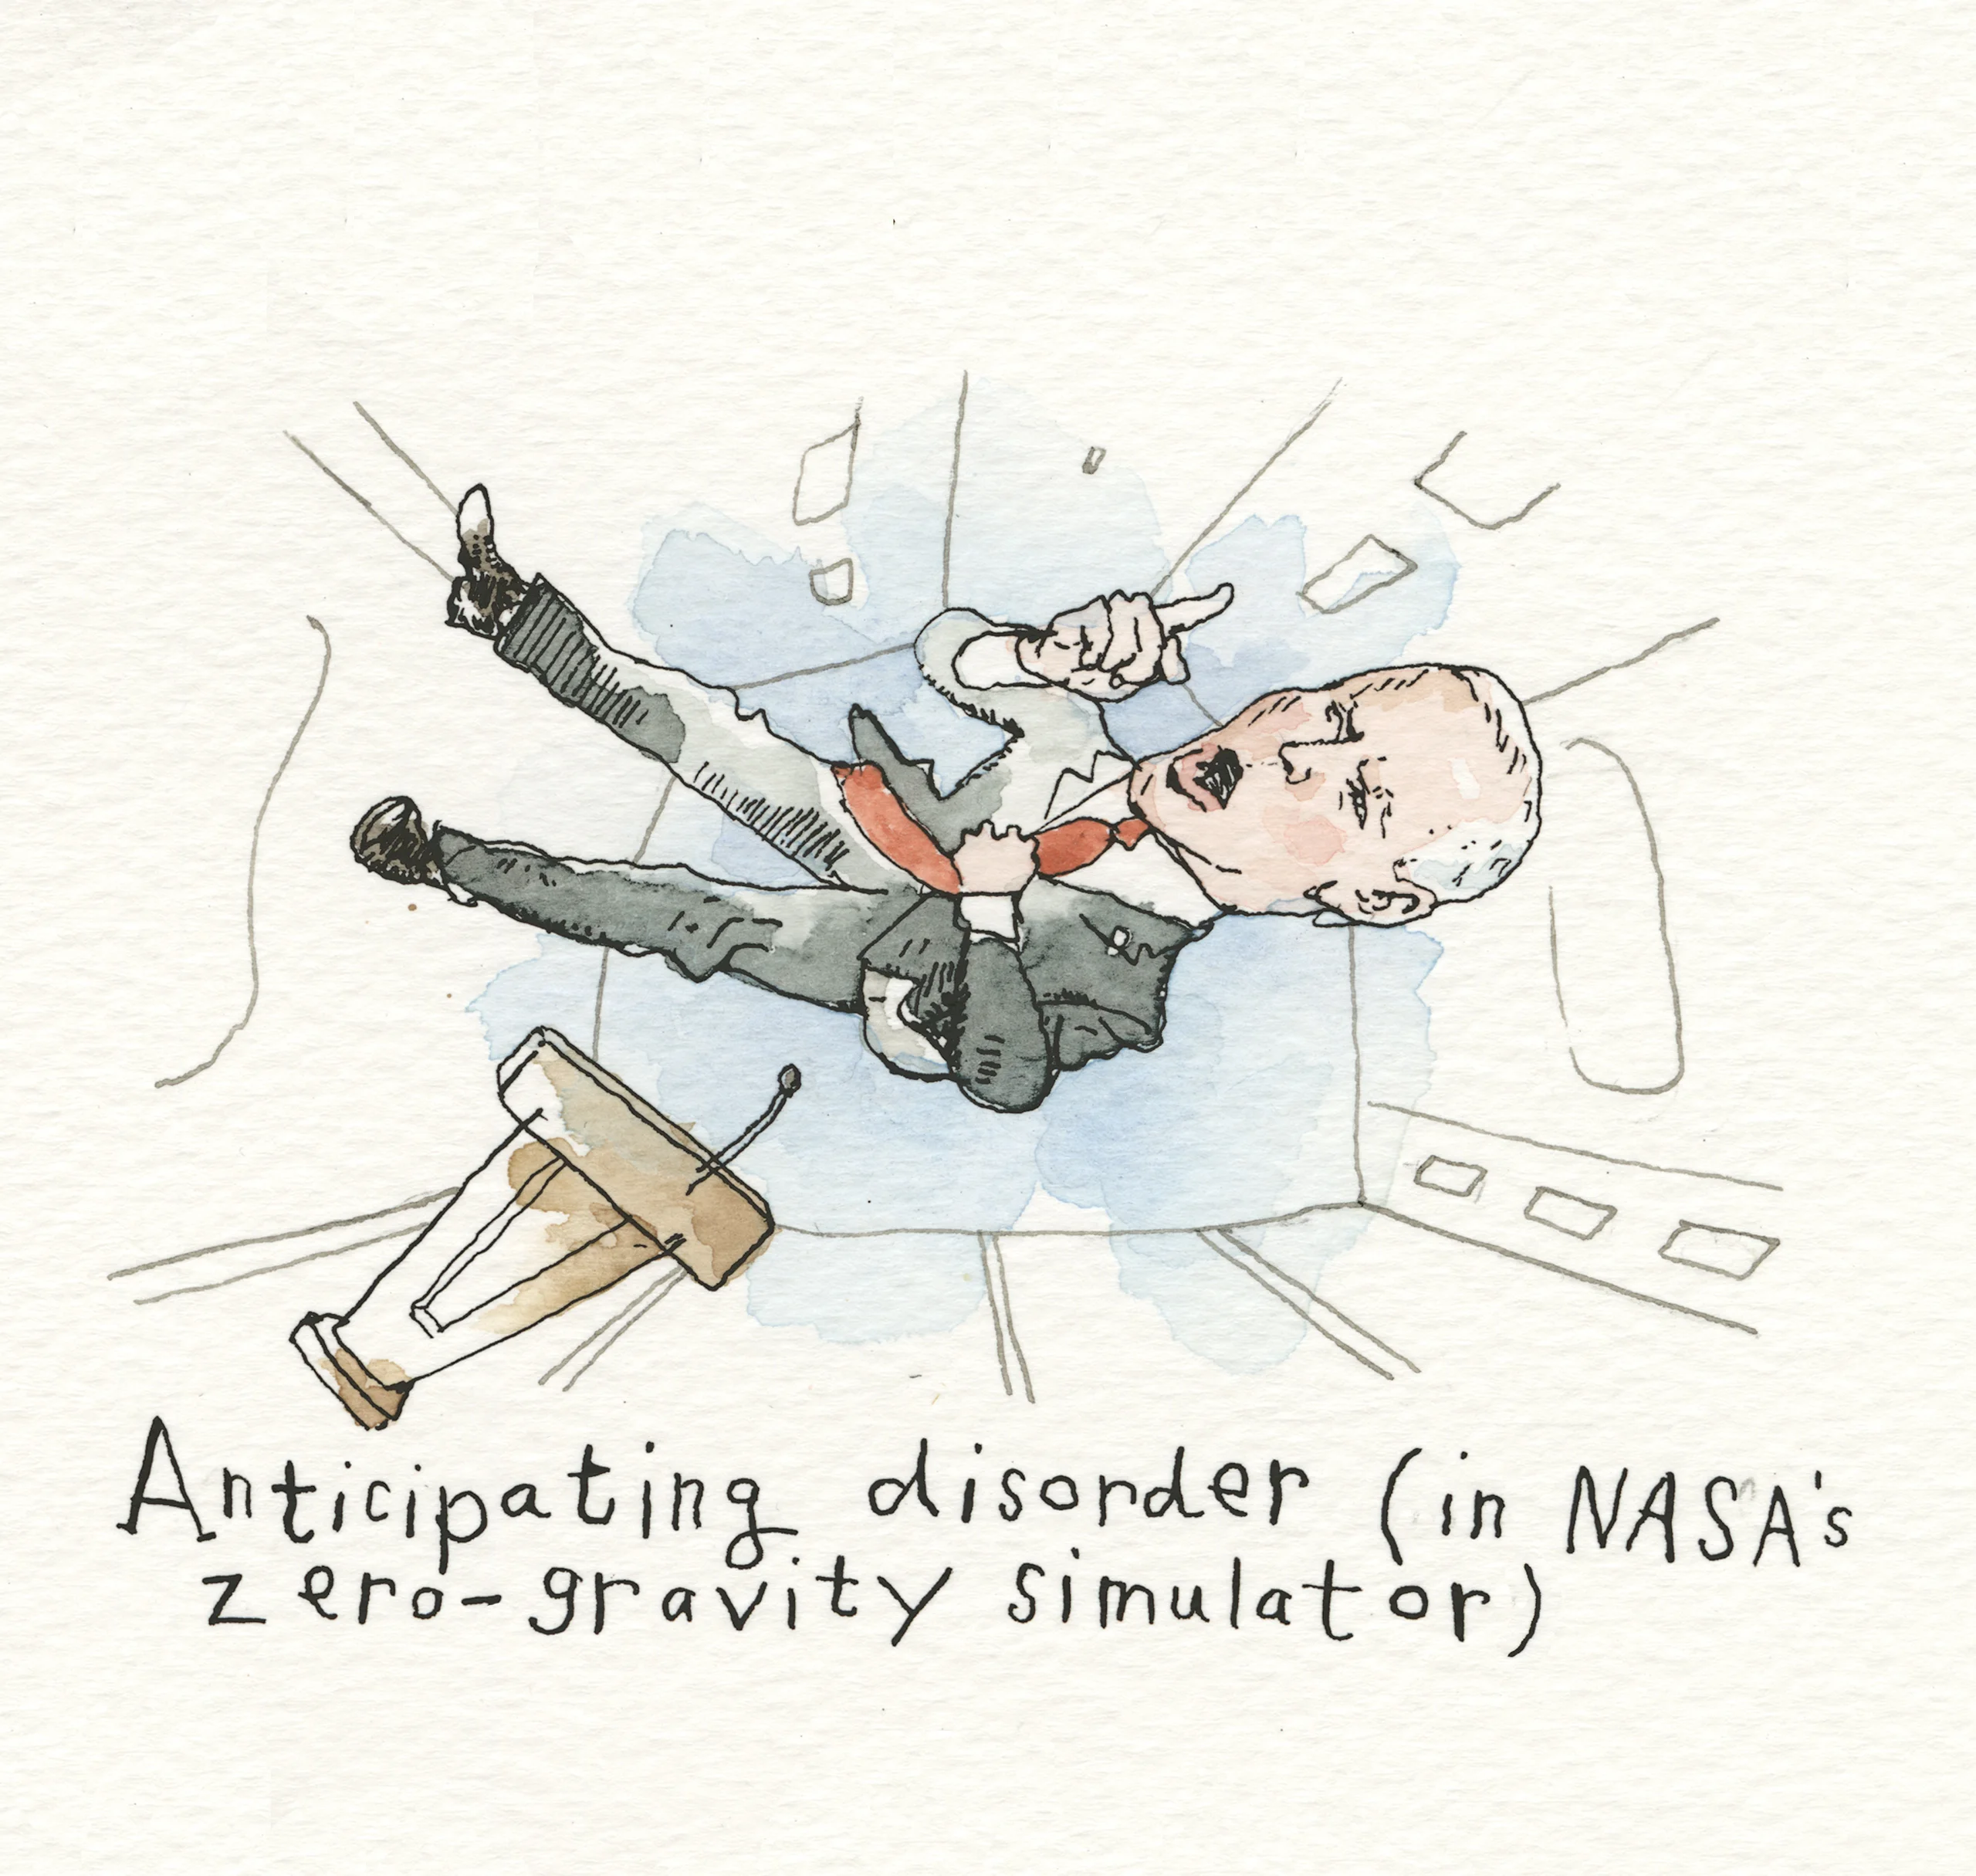 Anticipating disorder (in NASA's
zero-gravity simulator)